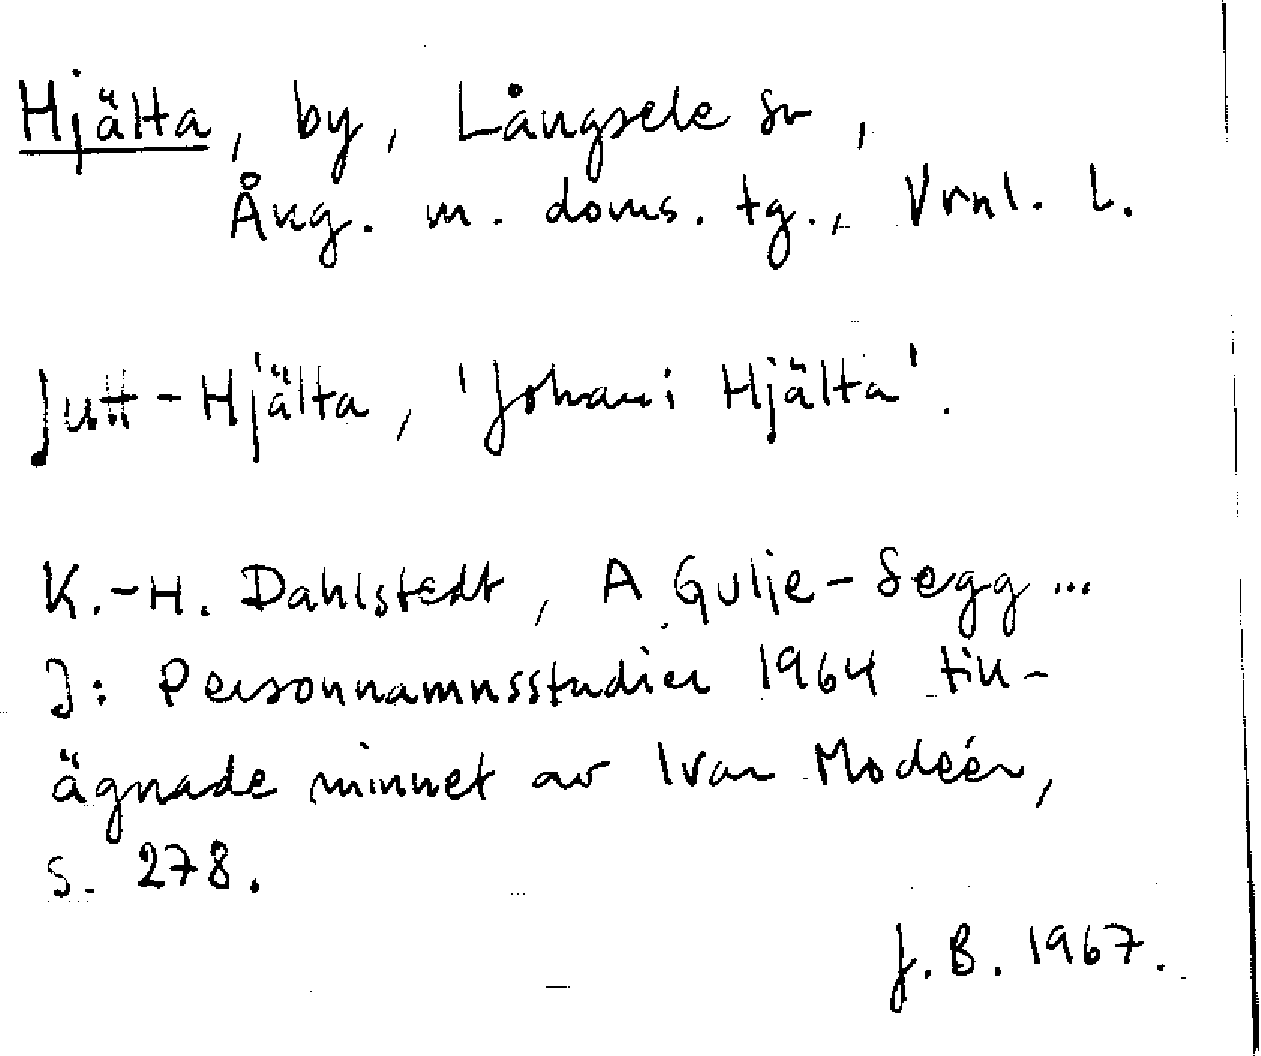 Hjälta, by, Långsele sn,
Ång. m. doms. tg., Vrnl. l.
Jutt-Hjälta, 'Johan i Hjälta'.
K.-H. Dahlstedt, A Gulje-Segg...
I: Personnamnsstudier 1964 till-
ägnade minnet av Ivar Modéer,
s. 278.
J. B. 1967.